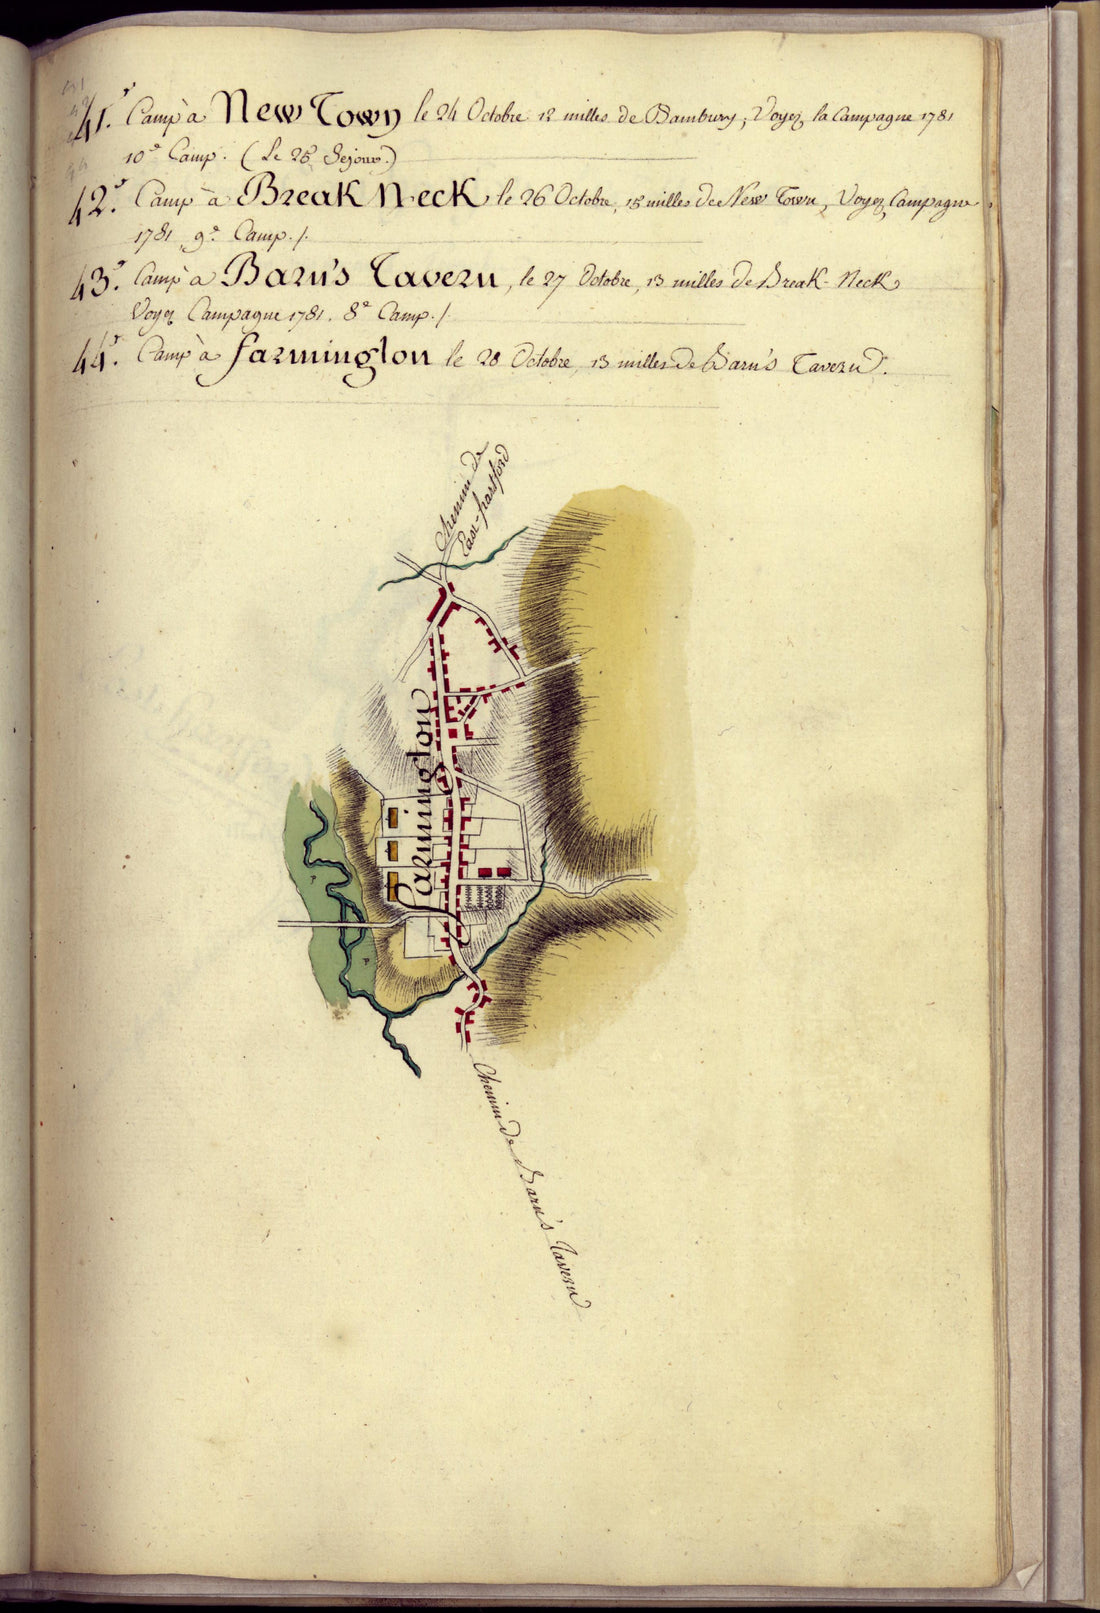 41.e Camp à New Town le 24 Octobre 12 milles de Dambury, Voyez la Campagne 1781
10e Camp. (Le 25 Sejour.)
42.e Camp à Break Neck le 26 Octobre, 15 milles de New Town, Voyez Campagne
1781, 9e Camp./.
43.e Camp à Barn's Tavern, le 27 Octobre, 13 milles de Break-Neck
Voyez Campagne 1781. 8e Camp./.
44.e Camp à farmington le 28 Octobre, 13 milles de Barn's Tavern.
Chemin de
East-hartford
farmington
Chemin de Barn's Tavern